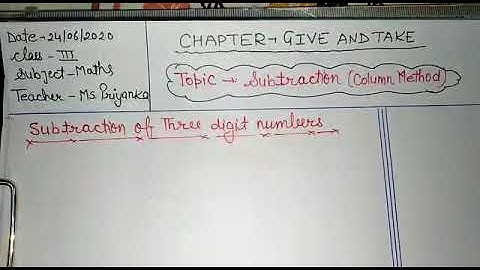 Date→24/06/2020
Class - III
Subject-Maths
Teacher - Ms Priyanka
CHAPTER→ GIVE AND TAKE
Topic → Subtraction (Column Method)
Subtraction of Three digit numbers